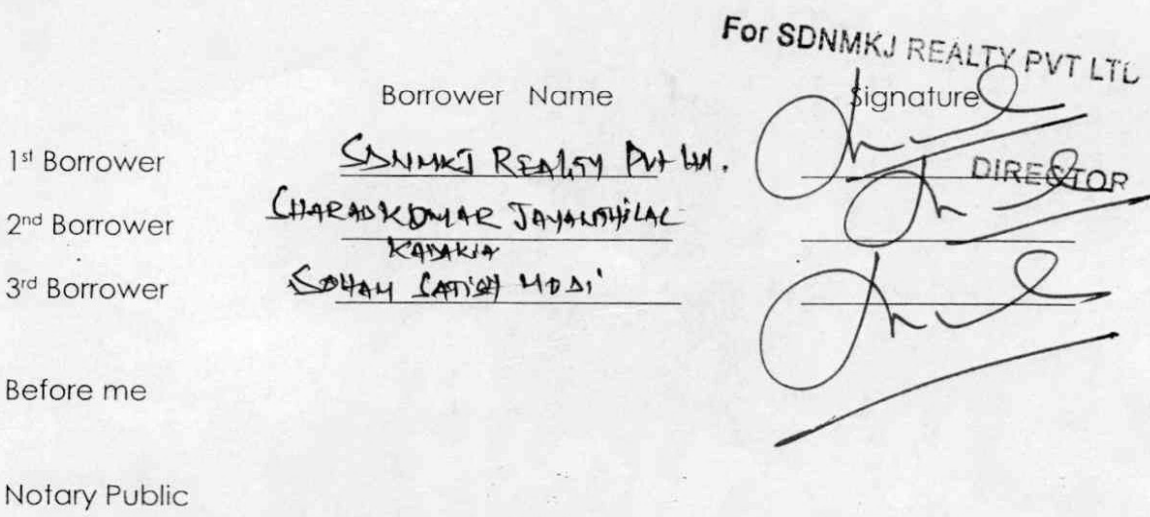 For SDNMKJ REALTY PVT LTD
Borrower Name Signature
1st Borrower SDNMKJ REALTY Pvt Ltd.
DIRECTOR
2nd Borrower SHARADKUMAR JAYANTHILAL
KADAKIA
3rd Borrower SOHAM SATISH MODI
Before me
Notary Public